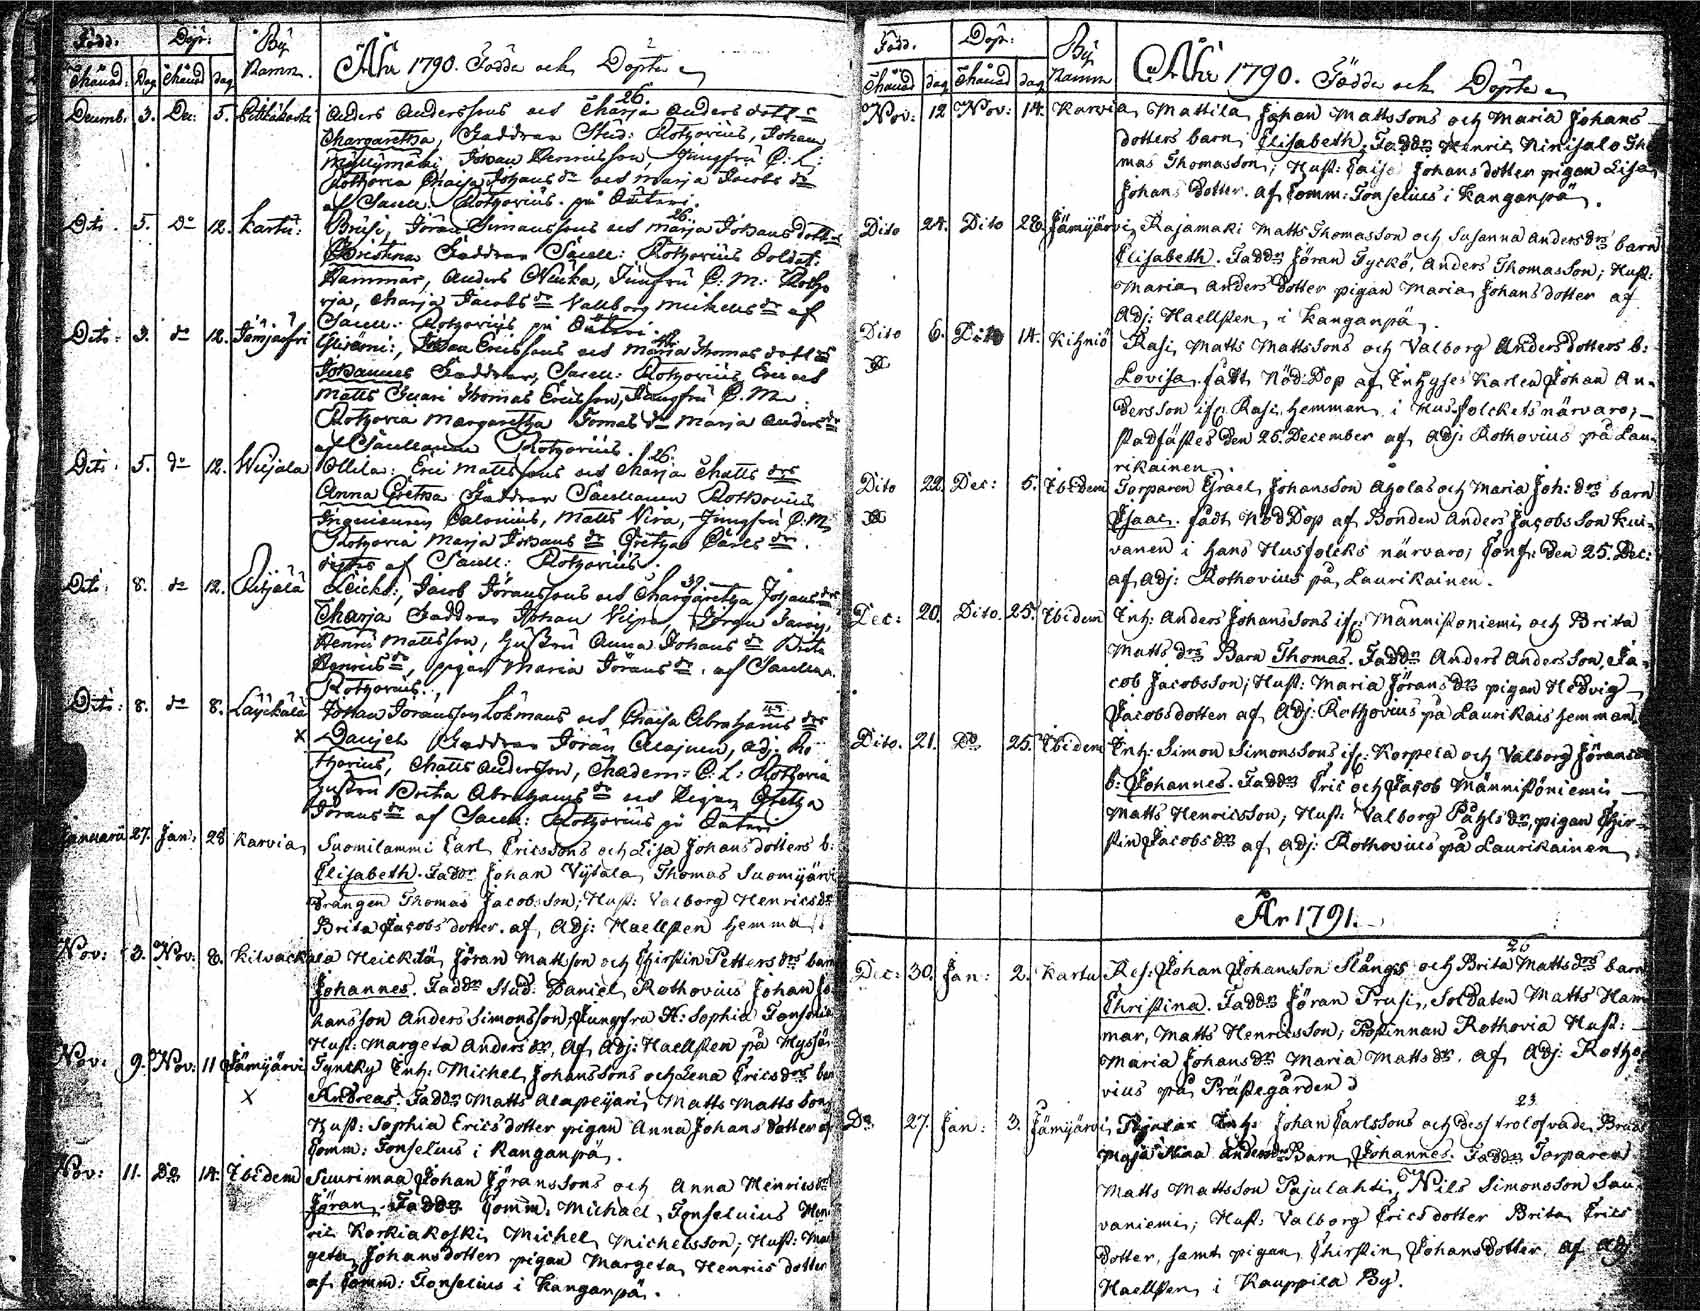 Född. Döpt: By
Månad. Dag Månad dag Namn. Åhr 1790. Födde och Döpte
Decemb. 3. Dec: 5. Anders Anderssons och Marja Anders dott:s 26.
Margaretha, Faddrar Stud: Rothovius, Johan
Myllymäki Johan Henricsson, Jungfru C: L:
Rothovia Caisa Johans dr och Marja Jacobs dr
af Sacell: Rothovius. på Öuteri.
Dito. 5. do 12. Kartu: Prusi, Jöran Simonssons och Marja Johans dott:s 26.
Christina Faddrar Sacell: Rothovius Soldat:
Hammar, Anders Jungfru C: M: Rotho
via, Marja Jacobs dr Vallborg Michels dr af
Sacell: Rothovius på Öuteri
Dito: 3. do 12. Jämijärfvi Johan Ericssons och Maria Thomas dott:s
Johannes Faddrar, Sacell: Rothovius Eric och
Matts Thomas Ericsson, Jungfru C. M.
Rothovia Margaretha Tomas dr Marja Anders dr
af Sacellanen Rothovius.
Dito: 5. do 12. Ollila: Eric Mattssons och Marja Matts drs 26.
Anna Gretha Faddrar Sacellanen Rothovius
Calonius, Matts Vira, Jungfru C: M
Rothovia Marja Johans dr Gretha Carls dr.
af Sacell: Rothovius.
Dito. 8. do 12. Jacob Jöranssons och Margaretha Johans drs 39
Marja Faddrar Johan
Henric Mattsson, Hustru Anna Johans dr Brita
Henrics dr, pigan Maria Jörans dr. af Sacellan.
Rothovius.
Dito: 8. do 8. Johan Joransson och Caisa Abrahams drs
x Daniel Faddrar Jöran Adj: Ro
thovius, Matts Andersson, Madem: C. L: Rothovia
Hustru Brita Abrahams dr och Pigan Gretha
Jörans dr af Sacell: Rothovius på Öuteri
Januarii 27. Jan: 28 Karvia Suomilammi Carl Ericssons och Lisa Johans dotters b:
Elisabeth. Faddr Johan Thomas Suomijärvi
Drängen Thomas Jacobsson; Hust: Valborg Henrics dr
Brita Jacobs dotter. af, Adj: Haellsten hemma
Nov: 3. Nov: 8. Heickilä Jöran Mattsson och Chirstin Petters drs barn
Johannes. Faddr Stud: Daniel Rothovius Johan Jo
hansson Anders Simonsson; Jungfru H: Sophia
Hust: Margeta Anders dr, Af Adj: Haellsten på
Nov. 9. Nov: 11 Jämijärvi Inh: Michel Johanssons och Lena Erics drs
x Andreas. Faddr Matts Matts Matts Son
Hust: Sophia Erics dotter pigan Anna Johans dotter af
Comm: Tonselius i Kanganpä.
Nov: 11. Do 14. Ibidem Suurimaa Johan Jöranssons och Anna Henrics dr
Jöran. Faddr Comm: Michael Tonselius Hen
ric Korkiakoski Michel Michelsson; Hust: Mar
geta Johans dotter pigan Margeta Henrics dotter
af Comm: Tonselius i Kanganpä.
Född. Döpt: By
Månad dag Månad dag Namn Åhr 1790. Födde och Döpte
Nov: 12 Nov: 14. Karvia, Mattila Johan Mattssons och Maria Johans
dotters barn Elisabeth, Faddr Henric Ninisalo Tho
mas Thomasson; Hust: Caisa Johans dotter pigan Lisa
Johans dotter. af Comm: Tonselius i Kanganpä.
Dito 24. Dito 28. Jämijärvi, Rajamaki Matts Thomasson och Susanna Anders drs barn
Elisabeth. Faddr Jöran Tyckö, Anders Thomasson; Hust:
Maria Anders dotter pigan Maria Johans dotter af
Adj: Haellsten i Kanganpä.
Dito 6. Dito 14. Kihniö Rasi, Matts Mattssons och Valborg Anders dotters b:
Lovisa, fådt Nöd-Dop af Inhyses Karlen Johan An-
dersson if: Rasi hemman i Husfolckets närvaro;
stadfästes den 26. December af Adj: Rothovius på Lau-
rikainen
Dito 22. Dec: 5. Ibidem Torparen Israel Johansson Aholas och Maria Joh: drs barn
Isaac. fådt Nöd Dop af Bonden Anders Jacobsson Kui-
vanen i hans Husfolcks närvaro; Conf: den 25. Dec:
af Adj: Rothovius på Laurikainen.
Dec: 20. Dito. 25. Ibidem Inh: Anders Johanssons if: Männistöniemi och Brita
Matts drs Barn Thomas. Faddr Anders Andersson, Ja-
cob Jacobsson; Hust: Maria Jörans dr pigan Hedvig
Jacobs dotter af Adj: Rothovius på Laurikais hemman
Dito. 21. Do 25. Ibidem Inh: Simon Simonssons if: Korpela och Valborg Jörans dr
b: Johannes. Faddr Eric och Jacob Männistöniemi
Matts Henricsson; Hust: Valborg Påhls dr, pigan Chir-
stin Jacobs dr af Adj: Rothovius på Laurikainen
År 1791.
Dec: 30. Jan: 2. Kartu Res: Johan Johansson Slångs och Brita Matts drs barn 26
Christina. Faddr Jöran Prusi, Soldaten Matts Ham
mar, Matts Henricsson; Rothovia Hust:
Maria Johans dr Maria Matts dr. af Adj: Rotho
vius på Prästegården
Do 27. Jan: 3. Jämijärvi, Inh: Johan Carlssons och dess trolofvade Brud 23
Maja Stina Anders dr Barn Johannes. Faddr Torparen
Matts Mattsson Pajulahti, Nils Simonsson Sau-
vaniemi; Hust: Valborg Erics dotter Brita Erics
dotter, samt pigan Chirstin Johans dotter. af Adj
Haellsten i Kauppila By.